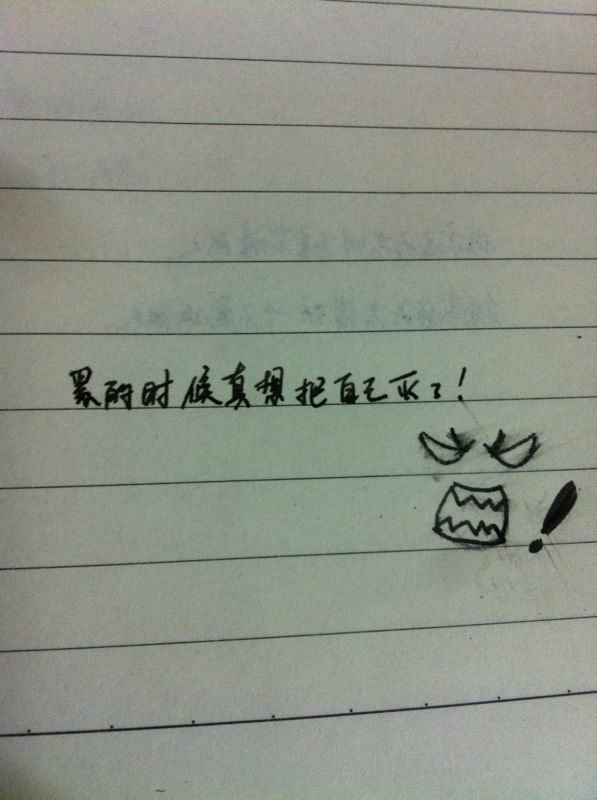 累的时候真想把自己灭了!
!